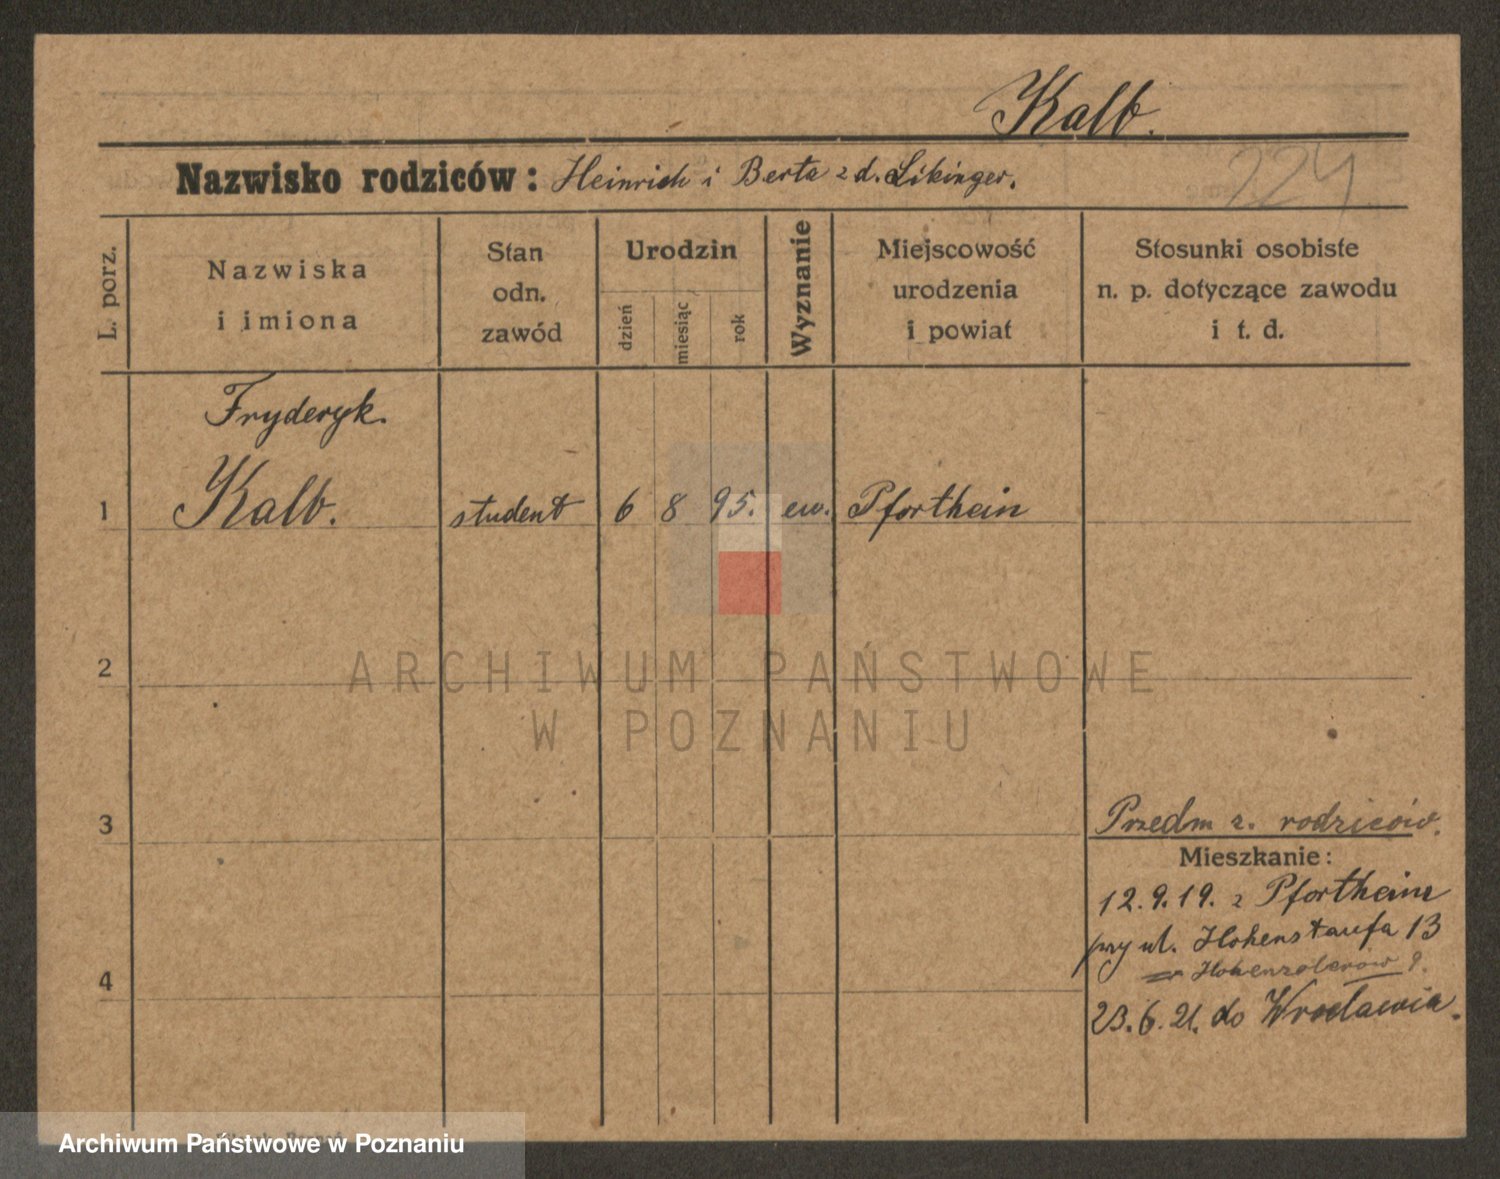 Kalb.
Nazwisko rodziców: Heinrich i Berta z d. Likinger.
224
L. porz.
Nazwiska
i imiona
Stan
odn.
zawód
Urodzin
dzień
miesiąc
rok
Wyznanie
Miejscowość
urodzenia
i powiat
Stosunki osobiste
n. p. dotyczące zawodu
i t. d.
Fryderyk.
1 Kalb. student 6 8 95. ew. Pforthein
2
ARCHIWUM PAŃSTWOWE
W POZNANIU
3
Przedm z. rodziców.
Mieszkanie:
12.9.19. z Pfortheim
przy ul. Hohenstaufa 13
Hohenzolerów 9.
4
23.6.21. do Wrocławia.
Archiwum Państwowe w Poznaniu